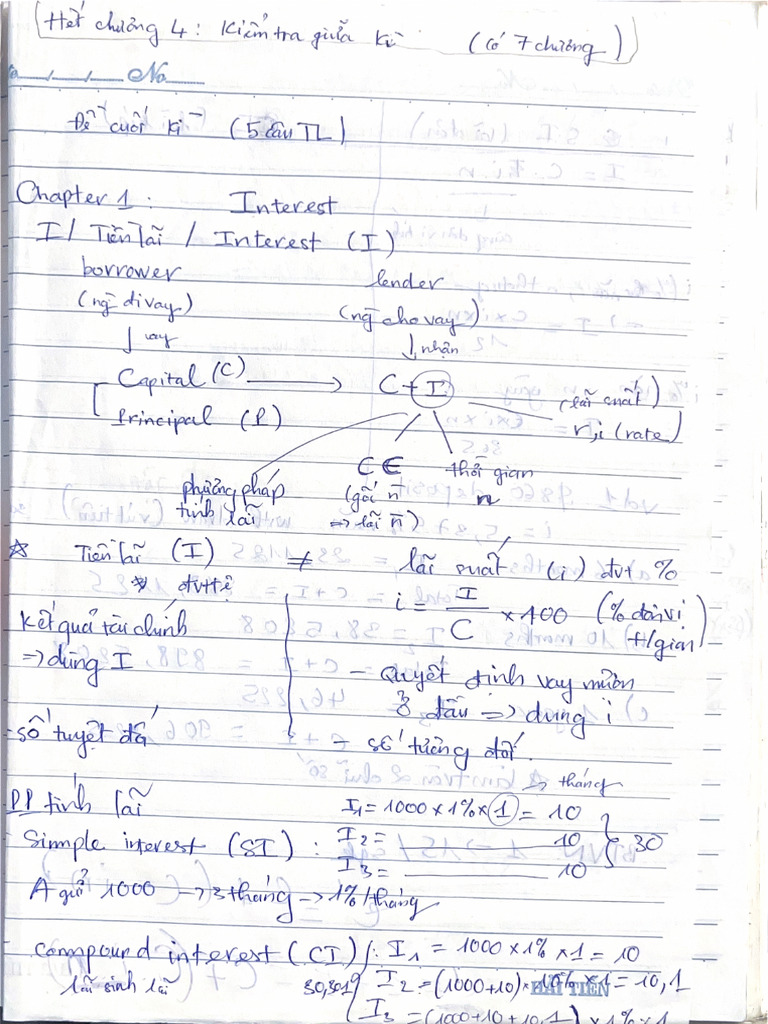 Hết chương 4: Kiểm tra giữa kì (có 7 chương)
No
Đề cuối kì (5 câu TL)
Chapter 1: Interest
I/ Tiền lãi / Interest (I)
borrower lender
(ng đi vay) (ng cho vay)
↓ vay ↓ nhận
Capital (C) → C + I (lãi suất)
Principal (P) r, i (rate)
C thời gian
phương pháp (gốc n̄ n
tính lãi => lãi n̄)
☆ Tiền lãi (I) ≠ lãi suất (i) đvt %
đvt tệ i = I/C × 100 (% đơn vị
Kết quả tài chính t/gian)
=> dùng I - Quyết định vay mượn
ở đâu => dùng i
- số tuyệt đối - số tương đối.
tháng
PP tính lãi I1 = 1000 × 1% × 1 = 10
Simple interest (SI): I2 = 10 30
I3 = 10
A gửi 1000 → 3 tháng → 1%/tháng
- compound interest (CI): I1 = 1000 × 1% × 1 = 10
lãi sinh lãi 30,301 I2 = (1000+10) × 1% × 1 = 10,1
HẢI TIẾN
I3 = (1000+10+10,1) × 1% × 1